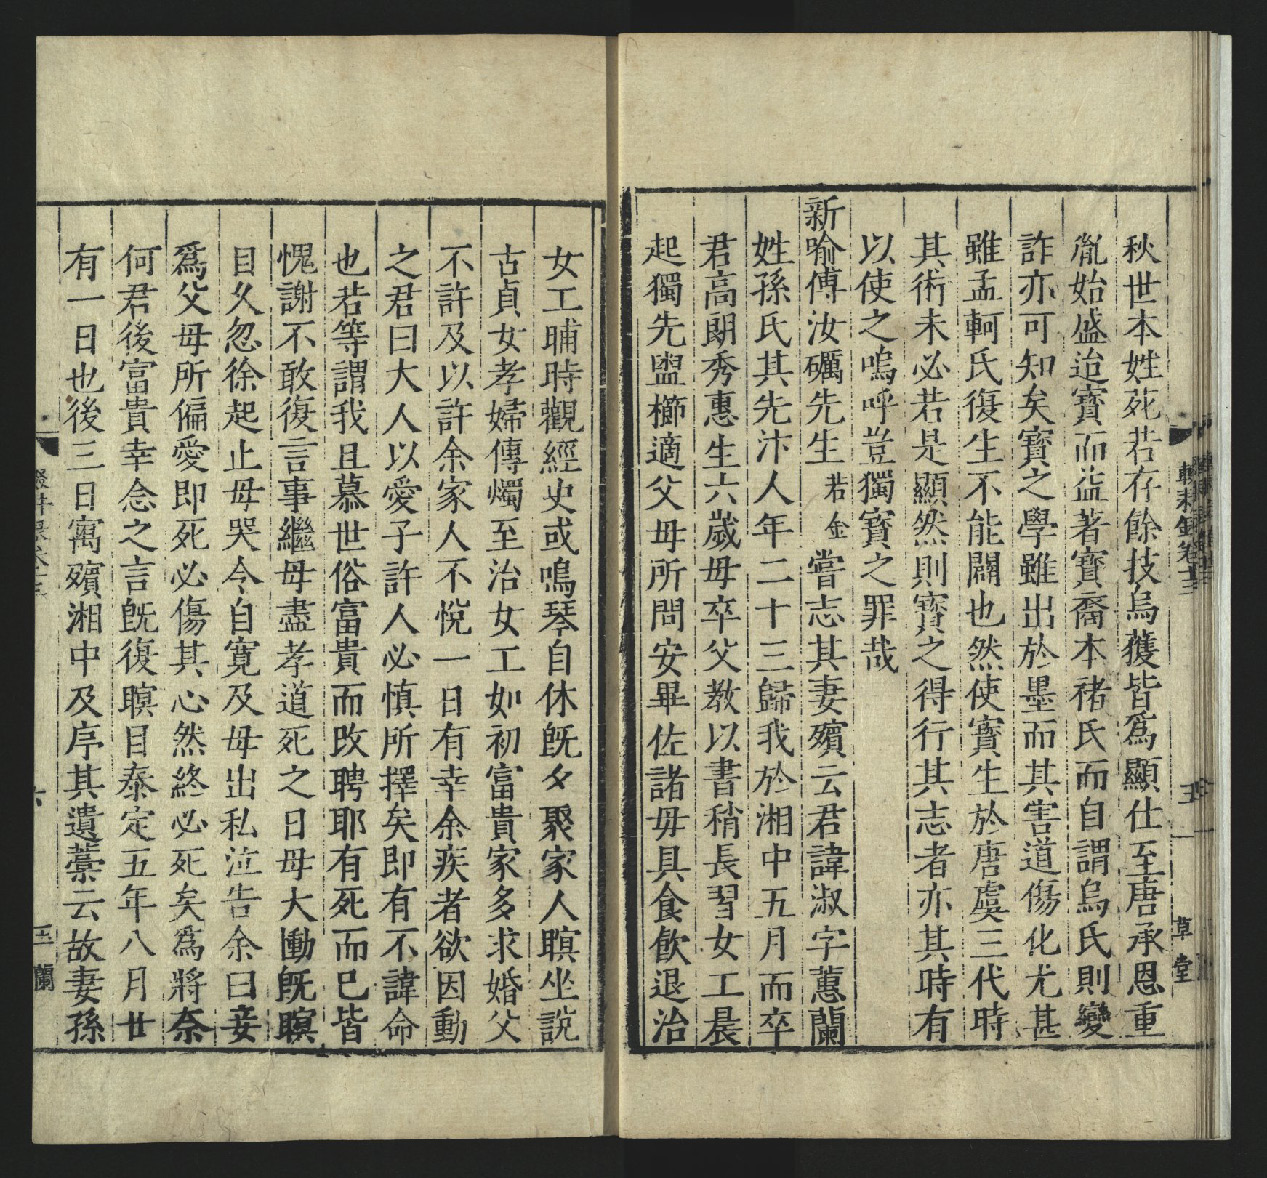 秋世本姓死若存餘技烏獲皆爲顯仕至唐承恩重
胤始盛迨寳而益著寳裔本禇氏而自謂烏氏則變
詐亦可知矣寳之學雖出於墨而其害道傷化尤甚
雖孟軻氏復生不能闢也然使寳生於唐虞三代時
其術未必若是顯然則寳之得行其志者亦其時有
以使之嗚呼豈獨寳之罪哉
新喻傅汝礪先生若金嘗志其妻殯云君諱淑字蕙蘭
姓孫氏其先汴人年二十三歸我於湘中五月而卒
君高朗秀惠生六歲母卒父教以書稍長習女工晨
起獨先盥櫛適父母所問安畢佐諸母具食飲退治
女工晡時觀經史或鳴琴自休旣夕聚家人瞑坐説
古貞女孝婦傳燭至治女工如初富貴家多求婚父
不許及以許余家人不悅一日有幸余疾者欲因動
之君曰大人以愛子許人必慎所擇矣即有不諱命
也若等謂我且慕世俗富貴而改聘耶有死而已皆
愧謝不敢復言事繼母盡孝道死之日母大慟旣瞑
目久忽徐起止母哭令自寛及母出私泣告余曰妾
爲父母所偏愛即死必傷其心然終必死矣爲將奈
何君後富貴幸念之言旣復瞑目泰定五年八月廿
有一日也後三日寓殯湘中及序其遺藳云故妻孫
輟耕錄卷十三
五
草堂
六
玉蘭